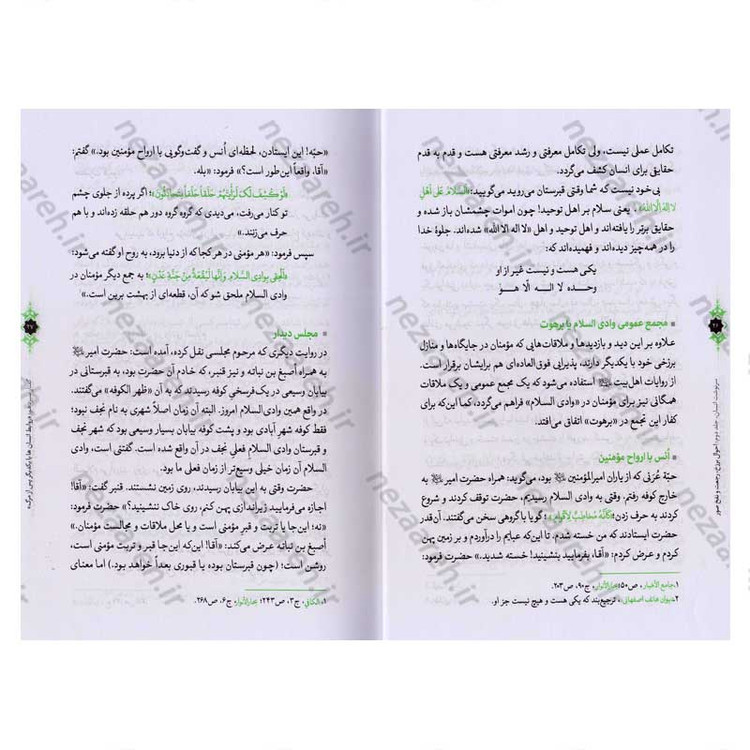 تکامل عملی نیست، ولی تکامل معرفتی و رشد معرفتی هست و قدم به قدم
حقایقی برای انسان کشف می‌گردد.
بی‌خود نیست که شما وقتی قبرستان می‌روید می‌گویید: «السَّلامُ عَلی أَهلِ
لا إلهَ إلّا الله»، یعنی سلام بر اهل توحید! چون اموات چشمشان باز شده و
حقایق برتر را یافته‌اند و اهل توحید و اهل «لا اله الا الله» شده‌اند. جلوهٔ خدا
را در همه‌چیز دیده‌اند و فهمیده‌اند که:
یکی هست و نیست غیر از او
وحده لا اله الا هو
مجمع عمومی وادی السلام یا برهوت
علاوه بر این دید و بازدیدها و ملاقات‌هایی که مؤمنان در جایگاه‌ها و منازل
برزخی خود با یکدیگر دارند، پذیرایی فوق‌العاده‌ای هم برایشان برقرار است.
از روایات اهل‌بیت استفاده می‌شود که یک مجمع عمومی و یک ملاقات
همگانی نیز برای مؤمنان در «وادی السلام» فراهم می‌گردد، کما این‌که برای
کفار این تجمع در «برهوت» اتفاق می‌افتد.
اُنس با ارواح مؤمنین
حبّهٔ عُرَنی که از یاران امیرالمؤمنین بود، می‌گوید: همراه حضرت امیر به
خارج کوفه رفتم. وقتی به وادی السلام رسیدیم، حضرت توقف کردند و شروع
کردند به حرف زدن؛ «کَأنَّهُ مُخاطِبٌ لِأقوامٍ»؛ گویا با گروهی سخن می‌گفتند. آن‌قدر
حضرت ایستادند که من خسته شدم. تا این‌که عبایم را درآوردم و بر زمین پهن
کردم و عرض کردم: «آقا، بفرمایید بنشینید! خسته شدید.» حضرت فرمود:
۱. جامع الأخبار، ص۵۰؛ بحارالأنوار، ج۹۰، ص۲۰۳.
۲. دیوان هاتف اصفهانی، ترجیع‌بند که یکی هست و هیچ نیست جز او.
سرنوشت انسان، جلد دوم: احوال برزخ، رجعت و نفخ صور
«حبّه! این ایستادن، لحظه‌ای اُنس و گفت‌وگویی با ارواح مؤمنین بود.» گفتم:
«آقا، واقعاً این‌طور است؟» فرمود: «بله.
«لَوْ کُشِفَ لَکَ لَرَأَیْتَهُمْ حَلَقاً حَلَقاً»؛ اگر پرده از جلوی چشم
تو کنار می‌رفت، می‌دیدی که گروه گروه دور هم حلقه زده‌اند و با هم
حرف می‌زنند.»
سپس فرمود: «هر مؤمنی در هر کجا که از دنیا برود، به روح او گفته می‌شود:
«اِلْحَقِی بِوادِی السَّلامِ، وَإِنَّها لَبُقْعَةٌ مِنْ جَنَّةِ عَدْنٍ»؛ به جمع دیگر مؤمنان در
وادی السلام ملحق شو که آن، قطعه‌ای از بهشت برین است.»
مجلس دیدار
در روایت دیگری که مرحوم مجلسی نقل کرده، آمده است: حضرت امیر
به همراه اَصبَغ بن نباته و نیز قنبر، که خادم آن حضرت بود، به قبرستانی در
بیابان وسیعی در یک‌فرسخیِ کوفه رسیدند که به آن «ظهر الکوفه» می‌گفتند.
در واقع همین وادی السلام امروز. البته آن زمان اصلاً شهری به نام نجف نبود؛
فقط کوفه شهرِ آبادی بود و پشت کوفه بیابان بسیار وسیعی بود که شهر نجف
و قبرستان وادی السلام فعلیِ نجف در آن واقع شده است. گفتنی است، وادی
السلام آن زمان خیلی وسیع‌تر از زمان فعلی ما بود.
حضرت وقتی به این بیابان رسیدند، روی زمین نشستند. قنبر گفت: «آقا!
اجازه می‌فرمایید زیراندازی پهن کنم، روی خاک ننشینید؟» حضرت فرمود:
«نه؛ این‌جا یا تربت و قبر مؤمنی است و یا محل ملاقات و مجالست مؤمنان.»
أصبغ بن نباته عرض می‌کند: «آقا! این‌که این‌جا قبر و تربت مؤمنی است،
روشن است؛ (چون قبرستان بوده یا قبوری بعداً خواهد بود.) اما معنای
۱. الکافی، ج۳، ص۲۴۳؛ بحارالأنوار، ج۶، ص۲۶۸.
nezaareh.ir